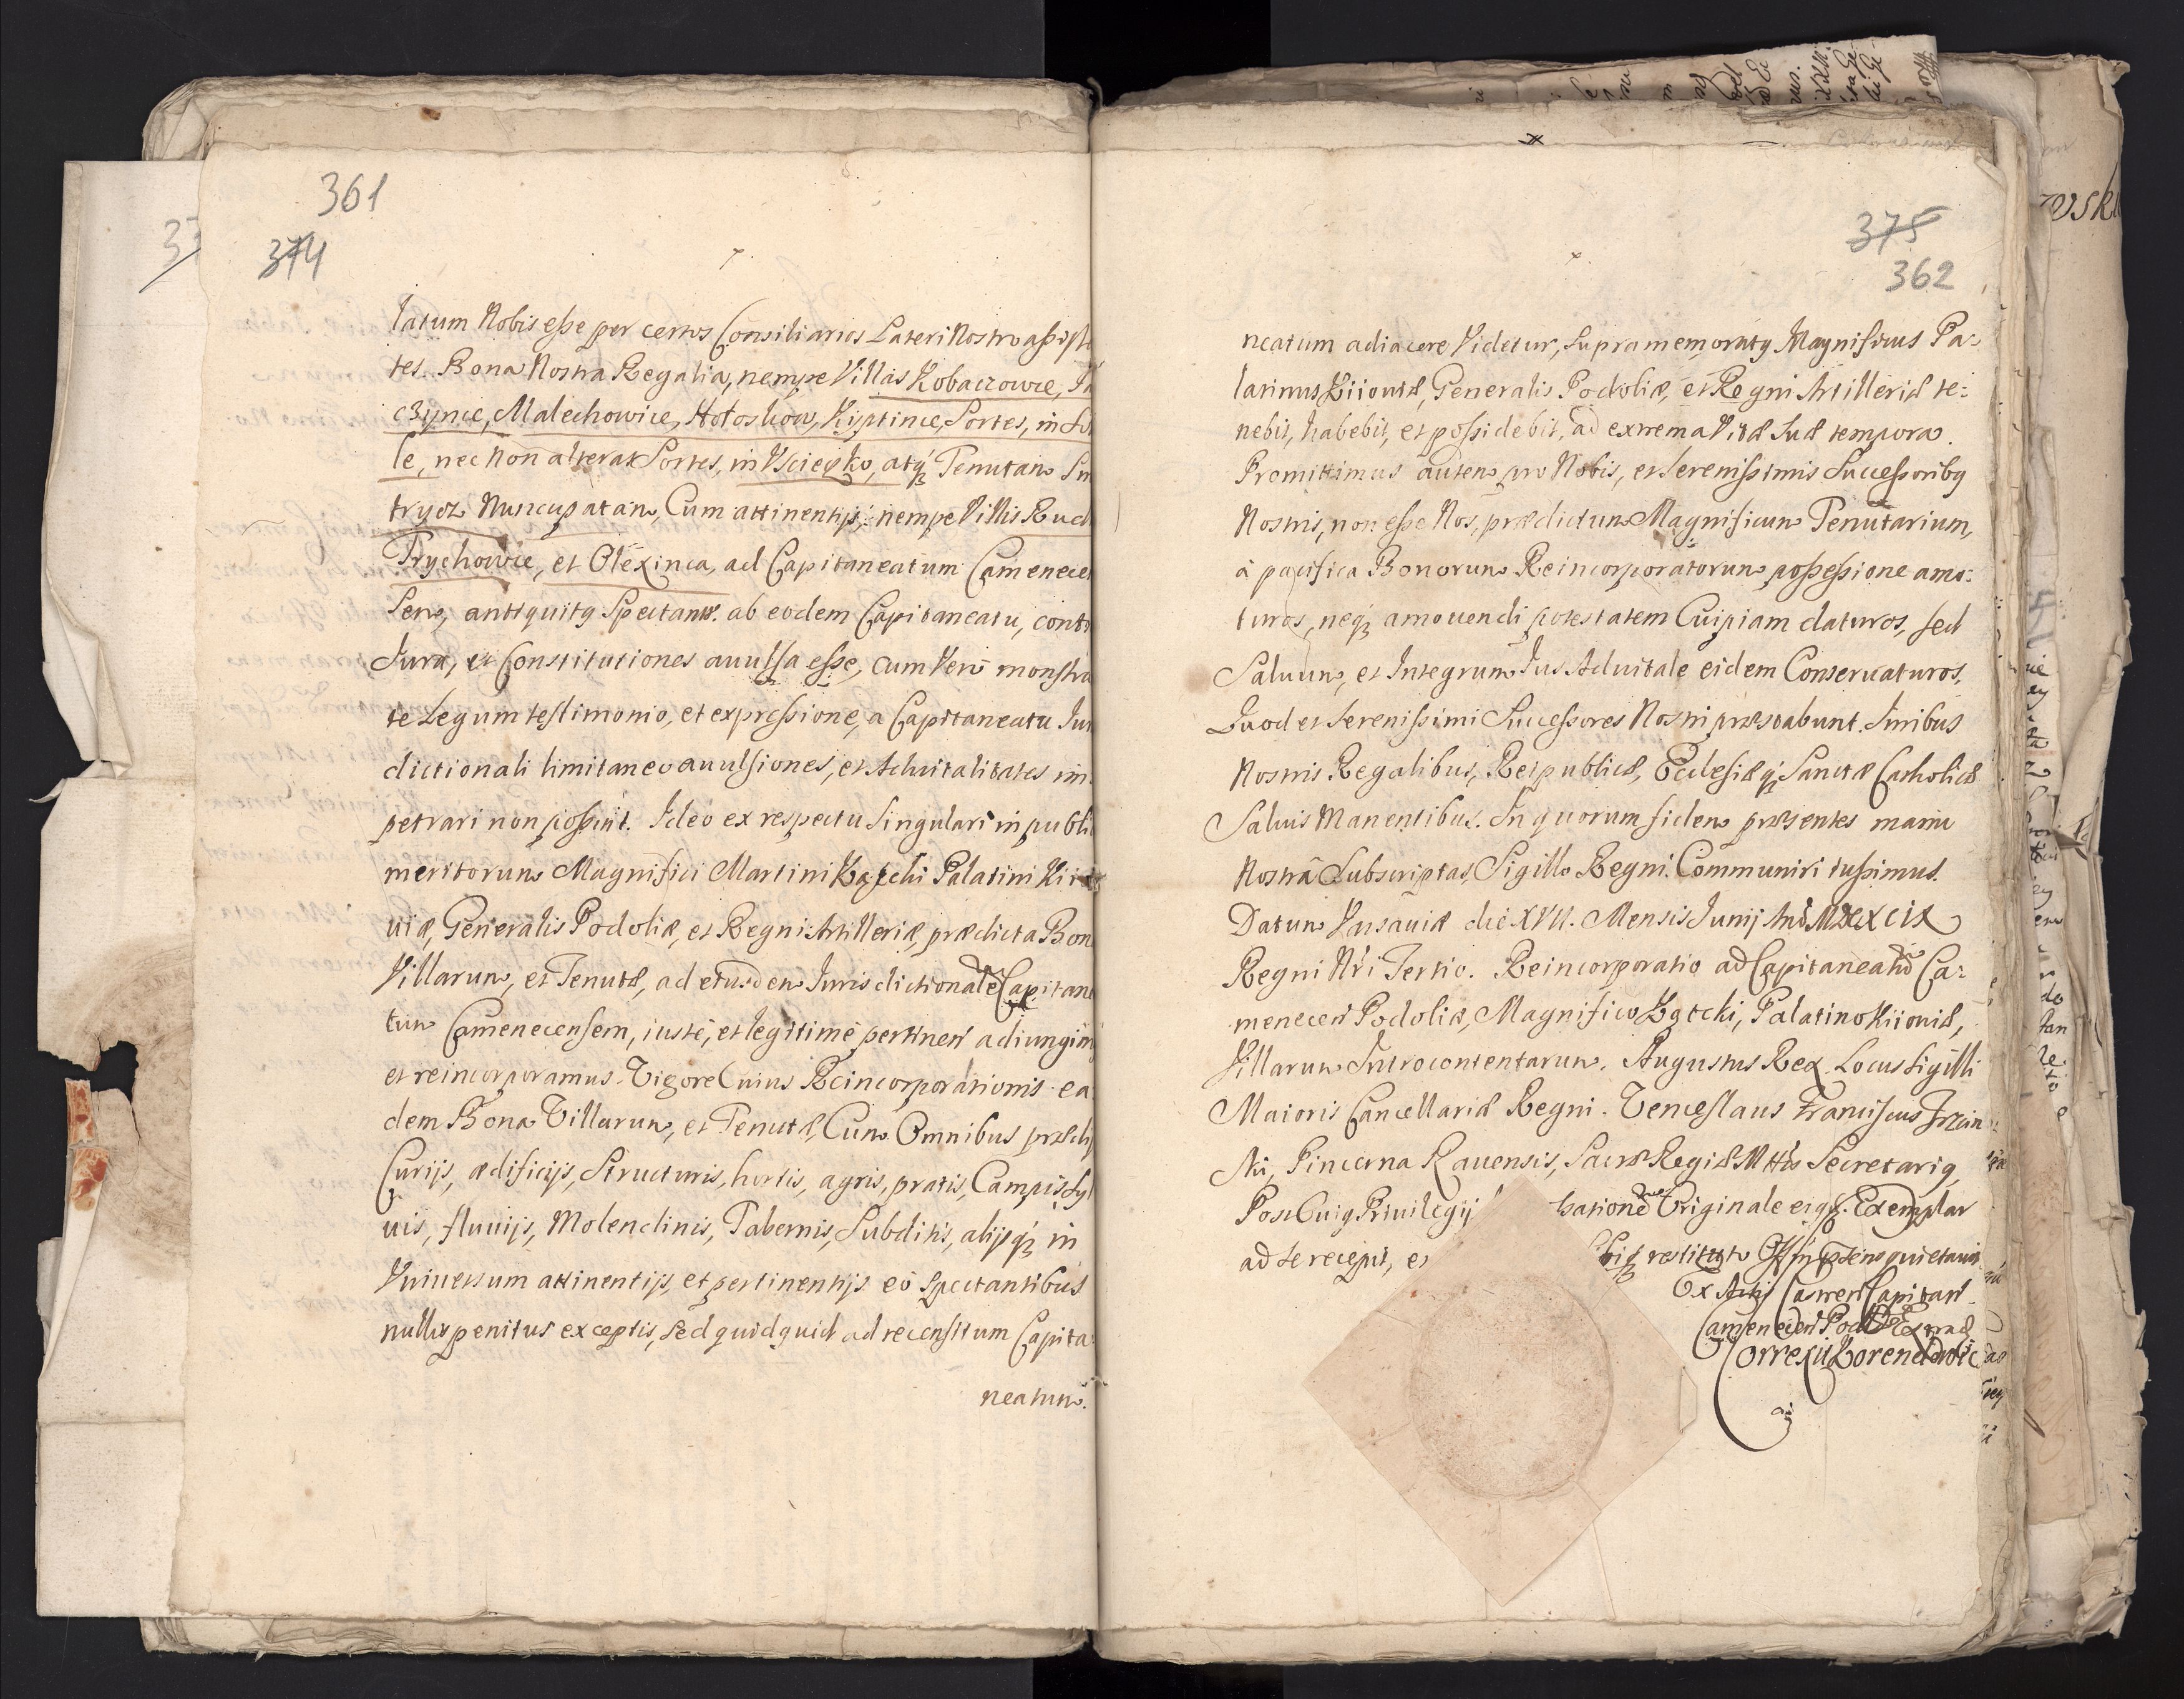 361
374
latum Nobis esse per certos Consiliarios Lateri Nostro assist
tes. Bona Nostra Regalia, nempe Villas Kobaczowce,
czynce, Malechowice, Hołoskow, Kiptince, Sortes, in
le, nec non alteras Sortes, in Uścieczko, atq3 Tenutam
trycz Nuncupatam, Cum attinentijs, nempe Villis Rud
Prychowce, et Olexinca, ad Capitaneatum Camenecen
sem, antiquitq Spectantes. ab eodem Capitaneatu, cont
Jura, et Constitutiones auulsa esse, cum Vero monstra
te Legum testimonio, et expressione, a Capitaneatu Iur
dictionali limitaneo auulsiones, et Aduitalitates im
petrari non possint. Ideo ex respectu Singulari in publi
meritorum Magnifici Martini Kątcki Palatini Kiio
uiæ, Generalis Podoliæ, et Regni Artilleriæ, prædicta Bon
Villarum, et Tenutæ, ad eiusdem Jurisdictionale Capitane
tum Camenecensem, iuste, et legitime pertinen adiungim
et reincorporamus. Vigore Cuius Reincorporationis ea
dem Bona Villarum, et Tenutæ, Cum Omnibus prædijs
Curijs, ædificijs, Structuris, hortis, agris, pratis, Campis, Syl
uis, fluuijs, Molendinis, Tabernis, Subditis, alijsq3 in
Vniuersum attinentijs, et pertinentijs eo Spectantibus
nullis penitus exceptis, sed quidquid ad recensitum Capita:
neatum.
375
362
neatum adiacere Videtur, supramemoratq Magnificus Pa:
latinus Kiiouiæ, Generalis Podoliæ, et Regni Artilleriæ te:
nebit, habebit, et possidebit, ad extrema Vitæ Suæ tempora.
Promittimus autem pro Nobis, et Serenissimis Successoribq
Nostris, non esse Nos, prædictum Magnificum Tenutarium,
à pacifica Bonorum Reincorporatorum possessione amo:
turos, neq3 amouendi potestatem Cuipiam daturos, sed
Saluum, et Integrum Jus Aduitale eidem Conseruaturos.
Quod et Serenissimi Successores Nostri præstabunt. Iuribus
Nostris Regalibus, Reipublicæ, Ecclesiæq3 Sanctæ Catholicæ
Saluis Manentibus. In quorum fidem præsentes manu
Nostrâ Subscriptas, Sigillo Regni Communiri iussimus.
Datum Varsauiæ die XVII. Mensis Junij Anō MDCXCIX
Regni Nri Tertio. Reincorporatio ad Capitaneatū Ca:
menecen Podoliæ, Magnifico Kątcki, Palatino Kiiouiæ,
Villarum Introcontentarum. Augustus Rex. Locus Sigilli
Maioris Cancellariæ Regni. Venceslaus Franciscus Trzin
ski, Pincerna Rauensis, Sacræ Regiæ Mttis Secretariq
Post Cuiq Priuilegij sationē Originale eiqs. Exemplar
ad se recepit, et restituto Offm præsens quietauit.
Ex Actis Castren Capitan
Camenecen Pod Extrad
Correxit